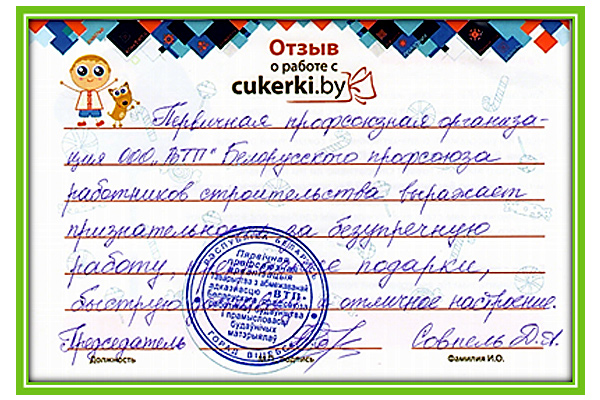 Отзыв
о работе с
cukerki.by
Первичная профсоюзная организа-
ция ООО „ВТП" Белорусского профсоюза
работников строительства выражает
признательность за безупречную
работу, подарки,
быструю отличное настроение.
Председатель Совпель Д.Я.
Должность подпись Фамилия И.О.
РЭСПУБЛІКА БЕЛАРУСЬ
Пярвічная
прафсаюзная
арганізацыя
таварыства з абмежаванай
адказнасцю „ВТП"
Беларускага прафсаюза
работнікаў будаўніцтва
і прамысловасці
будаўнічых
матэрыялаў
ГОРАД ВІЦЕБСК